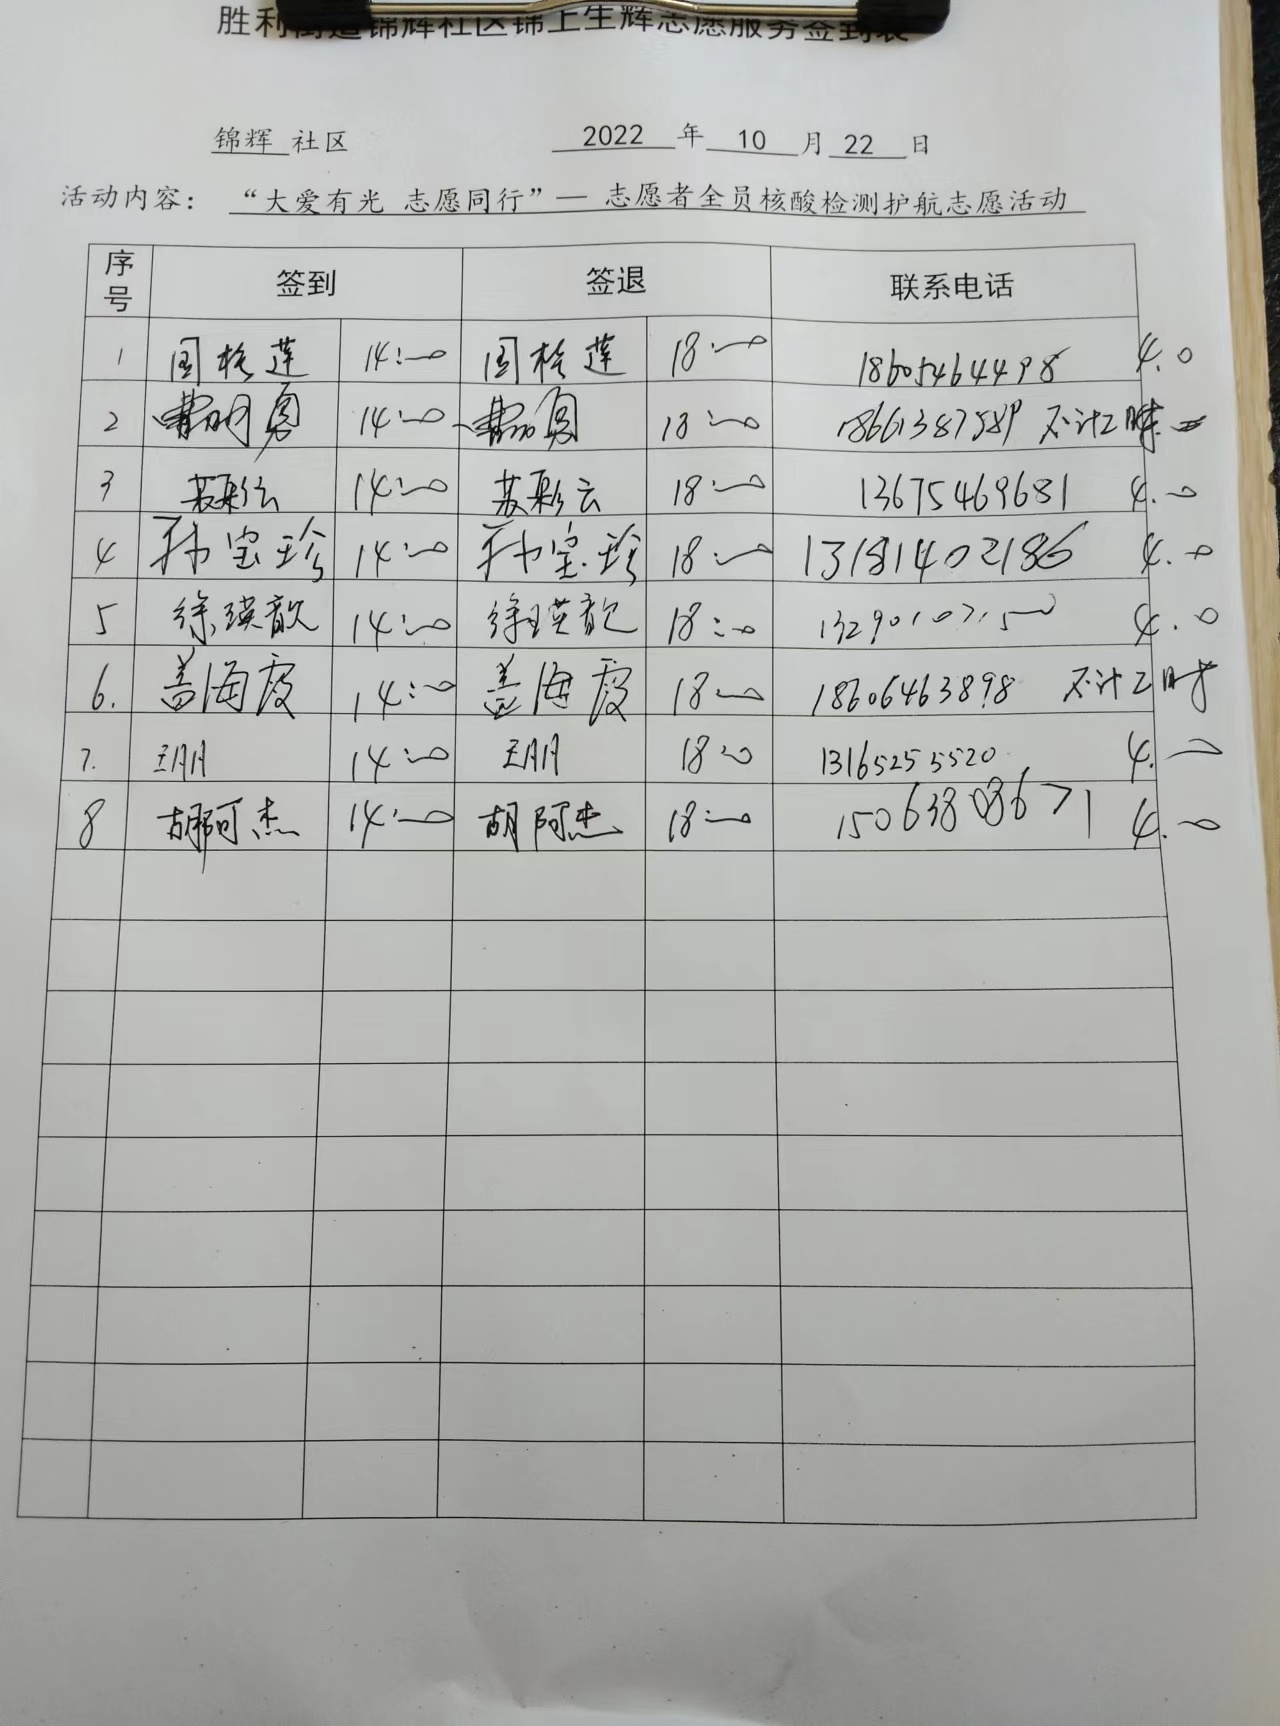 胜利街道锦辉社区锦上生辉志愿服务签到表
锦辉 社区 2022 年 10 月 22 日
活动内容： “大爱有光 志愿同行”— 志愿者全员核酸检测护航志愿活动
序号 签到 签退 联系电话
1 14:00 18:00 18605464498 4.0
2 14:00 18:00 18661387589 不计工时
3 苏彩云 14:00 苏彩云 18:00 13675469681 4.0
4 孙宝珍 14:00 孙宝珍 18:00 13181402186 4.0
5 徐瑛歆 14:00 徐瑛歆 18:00 4.0
6. 盖海霞 14:00 盖海霞 18:00 18606463898 不计工时
7. 王朋 14:00 王朋 18:00 13165255520 4.0
8 胡阿杰 14:00 胡阿杰 18:00 15063808671 4.0